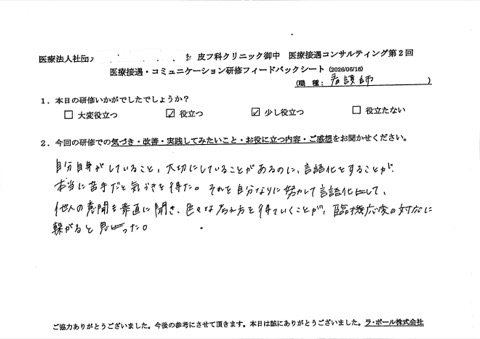 医療法人社団 皮フ科クリニック御中 医療接遇コンサルティング第2回
医療接遇・コミュニケーション研修フィードバックシート(2026/06/16)
(職 種: 看護師 )
1.本日の研修いかがでしたでしょうか?
□ 大変役立つ ☑ 役立つ ☑ 少し役立つ □ 役立たない
2.今回の研修での気づき・改善・実践してみたいこと・お役に立つ内容・ご感想をお聞かせください。
自分自身がしていること、大切にしていることがあるのに、言語化をすることが、
本当に苦手だと気づきを得た。それを自分なりに努力して言語化して、
他人の意見も素直に聞き、色々な考え方を得ていくことが、臨機応変の対応に
繋がると思った。
ご協力ありがとうございました。今後の参考にさせて頂きます。本日は誠にありがとうございました。ラ・ポール株式会社